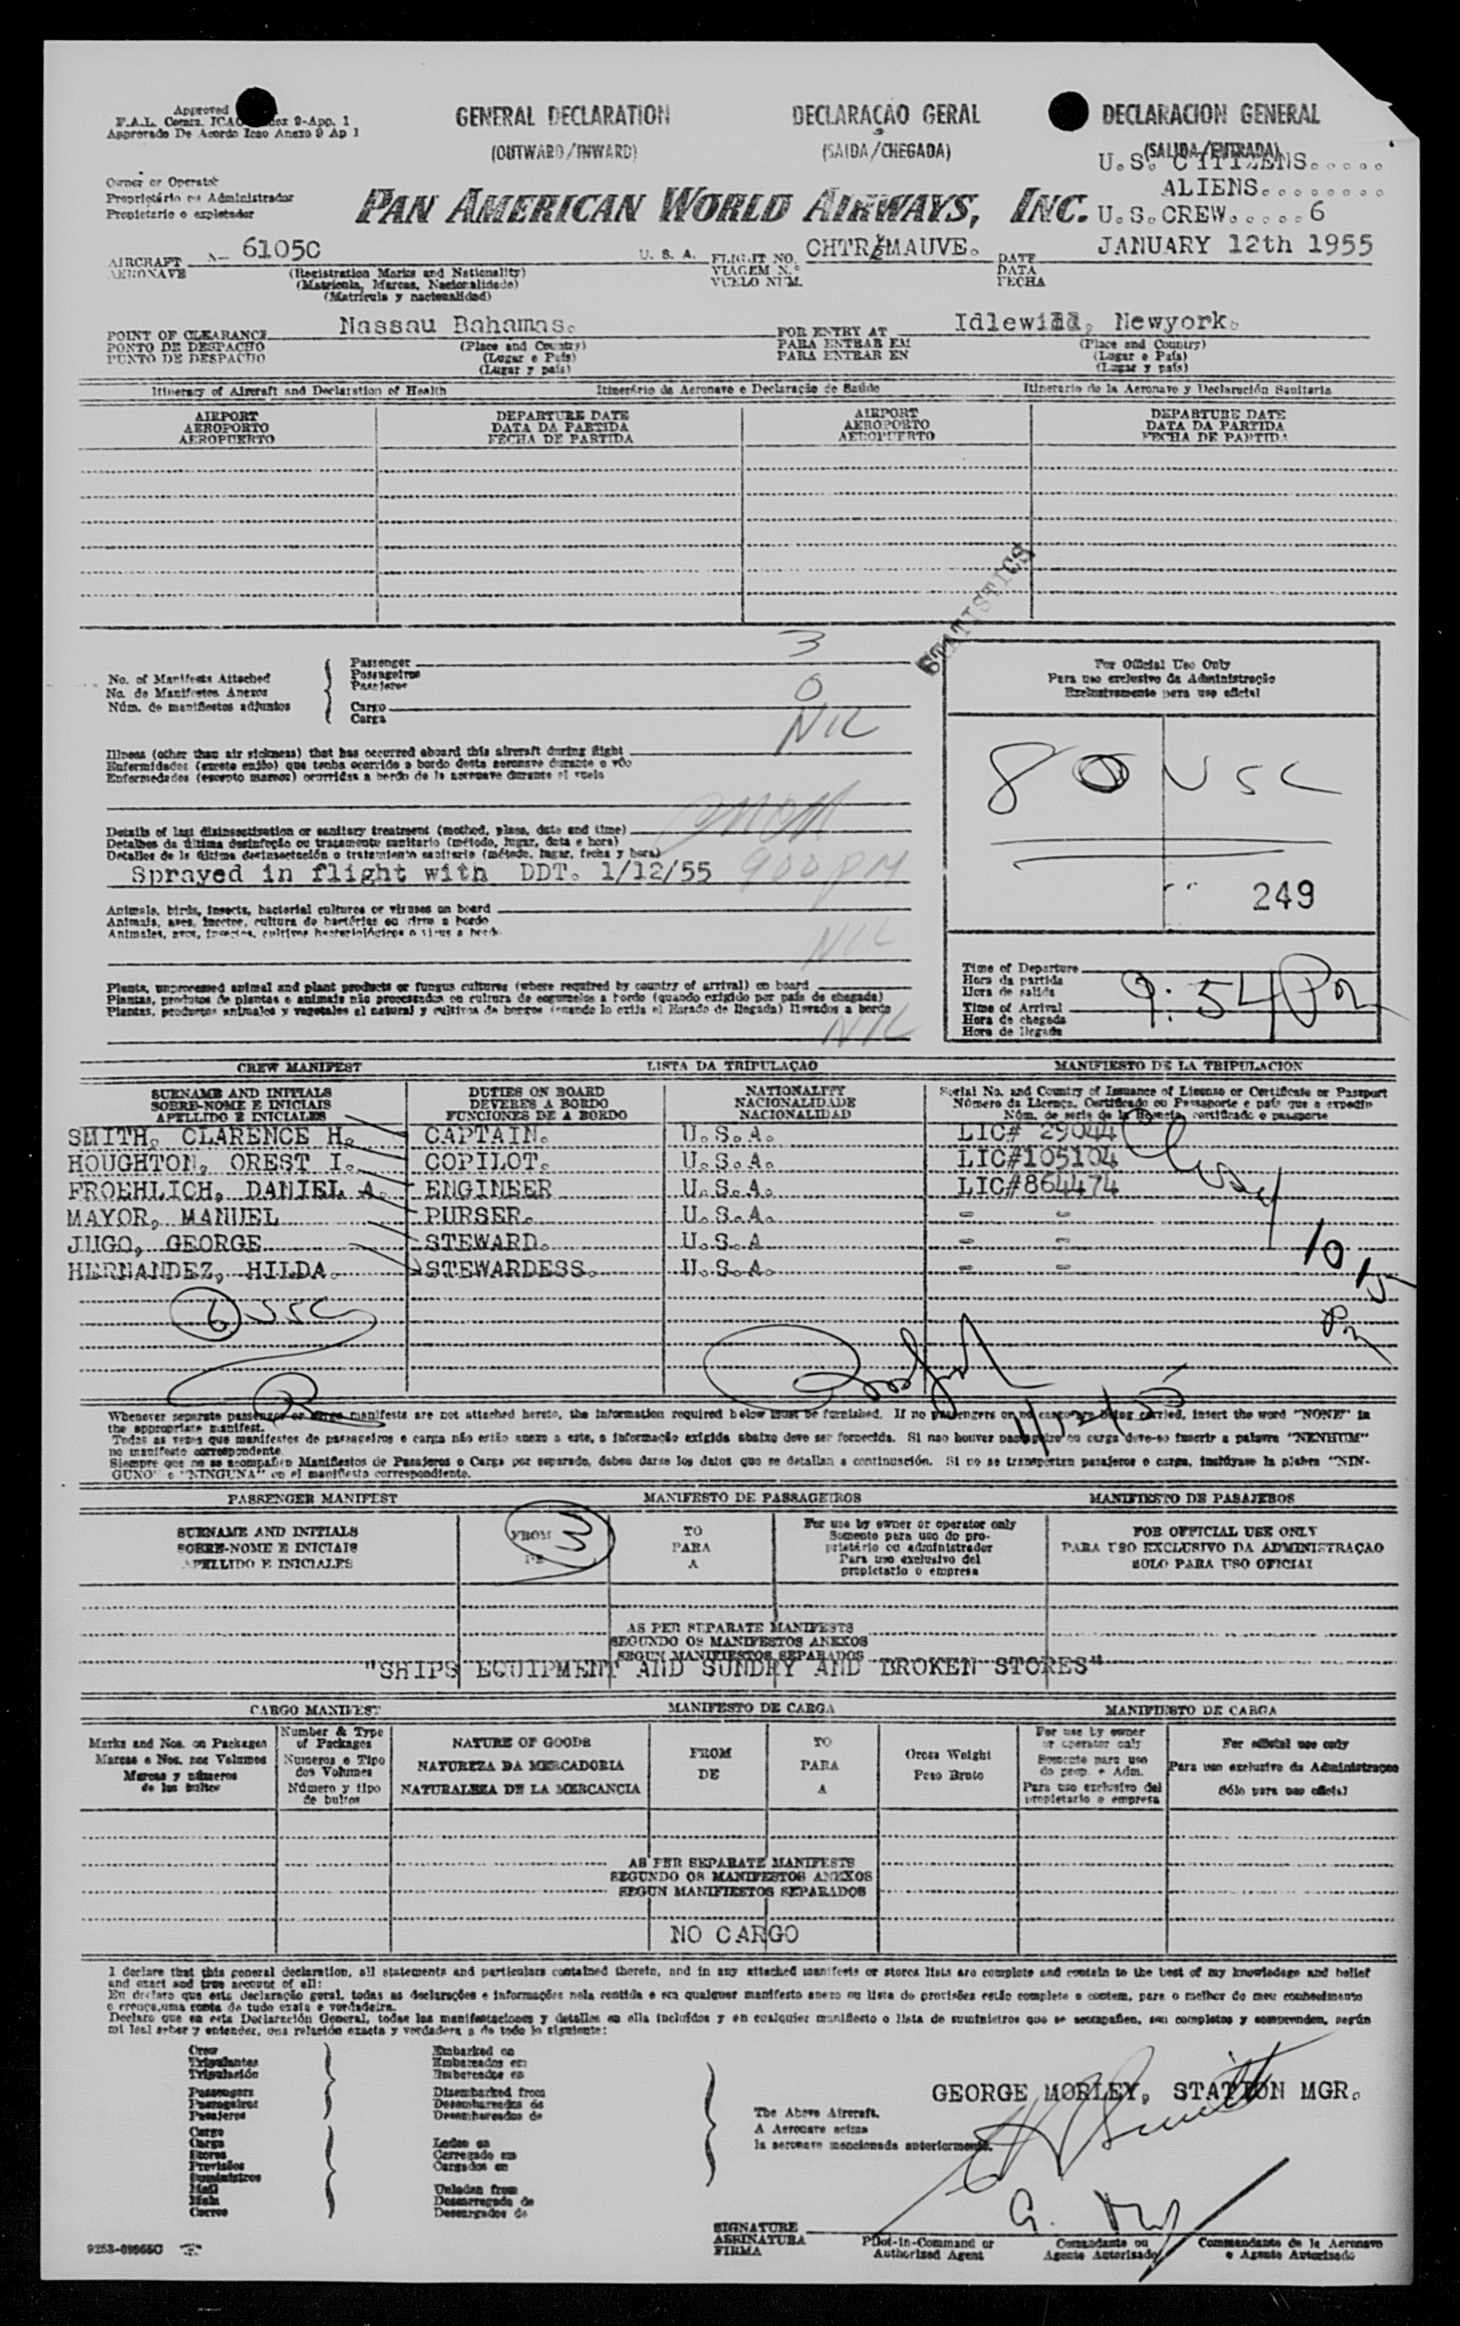 Approved
F.A.L. Comm. ICAO Annex 9-App. 1
Approvado De Acordo Icao Anexo 9 Ap 1
GENERAL DECLARATION
(OUTWARD/INWARD)
DECLARAÇÃO GERAL
(SAIDA/CHEGADA)
DECLARACION GENERAL
(SALIDA/ENTRADA)
U.S. CITIZENS.....
ALIENS........
U.S.CREW.....6
Owner or Operator
Proprietário ou Administrador
Propietario o explotador
PAN AMERICAN WORLD AIRWAYS, INC.
AIRCRAFT N- 6105C U. S. A.
AERONAVE
(Registration Marks and Nationality)
(Matrícula, Marcas, Nacionalidade)
(Matrícula y nacionalidad)
FLIGHT NO. CHTR MAUVE.
VIAGEM N.º
VUELO NUM.
DATE JANUARY 12th 1955
DATA
FECHA
POINT OF CLEARANCE Nassau Bahamas.
PONTO DE DESPACHO
PUNTO DE DESPACHO
(Place and Country)
(Lugar e País)
(Lugar y país)
FOR ENTRY AT Idlewild, Newyork.
PARA ENTRAR EM
PARA ENTRAR EN
(Place and Country)
(Lugar e País)
(Lugar y país)
Itinerary of Aircraft and Declaration of Health
Itinerário da Aeronave e Declaração de Saúde
Itinerario de la Aeronave y Declaración Sanitaria
AIRPORT
AEROPORTO
AEROPUERTO
DEPARTURE DATE
DATA DA PARTIDA
FECHA DE PARTIDA
AIRPORT
AEROPORTO
AEROPUERTO
DEPARTURE DATE
DATA DA PARTIDA
FECHA DE PARTIDA
STATISTICS
No. of Manifests Attached
No. de Manifestos Anexos
Núm. de manifiestos adjuntos
Passenger 3
Passageiros
Pasajeros
Cargo 0
Carga
Illness (other than air sickness) that has occurred aboard this aircraft during flight NIL
Enfermidades (exceto enjôo) que tenha ocorrido a bordo desta aeronave durante o vôo
Enfermedades (excepto mareos) ocurridas a bordo de la aeronave durante el vuelo
Details of last disinsectisation or sanitary treatment (method, place, date and time)
Detalhes da última desinfeção ou tratamento sanitario (método, lugar, data e hora)
Detalles de la última desinsectación o tratamiento sanitario (método, lugar, fecha y hora)
Sprayed in flight with DDT. 1/12/55 900 PM
Animals, birds, insects, bacterial cultures or viruses on board
Animais, aves, insetos, cultura de bactérias ou virus a bordo
Animales, aves, insectos, cultivos bacteriológicos o virus a bordo
NIL
Plants, unprocessed animal and plant products or fungus cultures (where required by country of arrival) on board
Plantas, produtos de plantas e animais não processados ou cultura de cogumelos a bordo (quando exigido por país de chegada)
Plantas, productos animales y vegetales al natural y cultivos de hongos (cuando lo exija el Estado de llegada) llevados a bordo
NIL
For Official Use Only
Para uso exclusivo da Administração
Exclusivamente para uso oficial
80 USC
249
Time of Departure
Hora da partida
Hora de salida
Time of Arrival 9:54 Pm
Hora de chegada
Hora de llegada
CREW MANIFEST
LISTA DA TRIPULAÇÃO
MANIFIESTO DE LA TRIPULACION
SURNAME AND INITIALS
SOBRE-NOME E INICIAIS
APELLIDO E INICIALES
DUTIES ON BOARD
DEVERES A BORDO
FUNCIONES DE A BORDO
NATIONALITY
NACIONALIDADE
NACIONALIDAD
Serial No. and Country of Issuance of License or Certificate or Passport
Número da Licença, Certificado ou Passaporte e país que o expediu
Núm. de serie de la licencia, certificado o pasaporte
SMITH, CLARENCE H. CAPTAIN. U.S.A. LIC# 29044
HOUGHTON, OREST I. COPILOT. U.S.A. LIC#105104
FROEHLICH, DANIEL A. ENGINEER U.S.A. LIC#864474
MAYOR, MANUEL PURSER. U.S.A. - -
JUGO, GEORGE STEWARD. U.S.A - -
HERNANDEZ, HILDA. STEWARDESS. U.S.A. - -
10 15
Pm
6 USC
Whenever separate passenger or cargo manifests are not attached hereto, the information required below must be furnished. If no passengers or no cargo are being carried, insert the word "NONE" in
the appropriate manifest.
Todas as vezes que manifestos de passageiros e carga não estão anexo a este, a informação exigida abaixo deve ser fornecida. Si nao houver passageiro ou carga deve-se inscrir a palavra "NENHUM"
no manifesto correspondente.
Siempre que no se acompañen Manifiestos de Pasajeros o Carga por separado, deben darse los datos que se detallan a continuación. Si no se transporten pasajeros o carga, inclúyase la plabra "NIN-
GUNO" o "NINGUNA" en el manifiesto correspondiente.
PASSENGER MANIFEST
MANIFESTO DE PASSAGEIROS
MANIFIESTO DE PASAJEROS
SURNAME AND INITIALS
SOBRE-NOME E INICIAIS
APELLIDO E INICIALES
FROM
DE
3
TO
PARA
A
For use by owner or operator only
Somente para uso do pro-
prietário ou administrador
Para uso exclusivo del
propietario o empresa
FOR OFFICIAL USE ONLY
PARA USO EXCLUSIVO DA ADMINISTRAÇAO
SOLO PARA USO OFICIAL
AS PER SEPARATE MANIFESTS
SEGUNDO OS MANIFESTOS ANEXOS
SEGUN MANIFIESTOS SEPARADOS
"SHIPS EQUIPMENT AND SUNDRY AND BROKEN STORES"
CARGO MANIFEST
MANIFESTO DE CARGA
MANIFIESTO DE CARGA
Marks and Nos. on Packages
Marcas e Nos. nos Volumes
Marcas y números
de los bultos
Number & Type
of Packages
Numeros e Tipo
dos Volumes
Número y tipo
de bultos
NATURE OF GOODS
NATUREZA DA MERCADORIA
NATURALEZA DE LA MERCANCIA
FROM
DE
TO
PARA
A
Gross Weight
Peso Bruto
For use by owner
or operator only
Somente para uso
do prop. e Adm.
Para uso exclusivo del
propietario o empresa
For official use only
Para uso exclusivo da Administraçao
Sólo para uso oficial
AS PER SEPARATE MANIFESTS
SEGUNDO OS MANIFESTOS ANEXOS
SEGUN MANIFIESTOS SEPARADOS
NO CARGO
I declare that this general declaration, all statements and particulars contained therein, and in any attached manifests or stores lists are complete and contain to the best of my knowledege and belief
and exact and true account of all:
En declaro que esta declaração geral, todas as declarações e informações nela contida e em qualquer manifesto anexo ou lista de provisões estão complete e contem, para o melhor de meu conhecimento
e crença,uma conta de tudo exata e verdadeira.
Declaro que en esta Declaración General, todas las manifestaciones y detalles en ella incluídos y en cualquier manifiesto o lista de suministros que se acompañen, sen completos y comprenden, según
mi leal saber y entender, una relación exacta y verdadera a de todo lo siguiente:
Crew
Tripulantes
Tripulación
Passengers
Passageiros
Pasajeros
Cargo
Carga
Stores
Provisões
Suministros
Mail
Mala
Correo
Embarked on
Embarcados em
Embarcados en
Disembarked from
Desembarcados de
Desembarcados de
Laden on
Carregado em
Cargados en
Unladen from
Descarregada de
Descargados de
The Above Aircraft.
A Aeronave acima
la aeronave mencionada anteriormente.
GEORGE MORLEY, STATION MGR.
SIGNATURE
ASSINATURA
FIRMA
Pilot-in-Command or
Authorized Agent
Comandante ou
Agente Autorisado
Commandante de la Aeronave
e Agente Autorizado